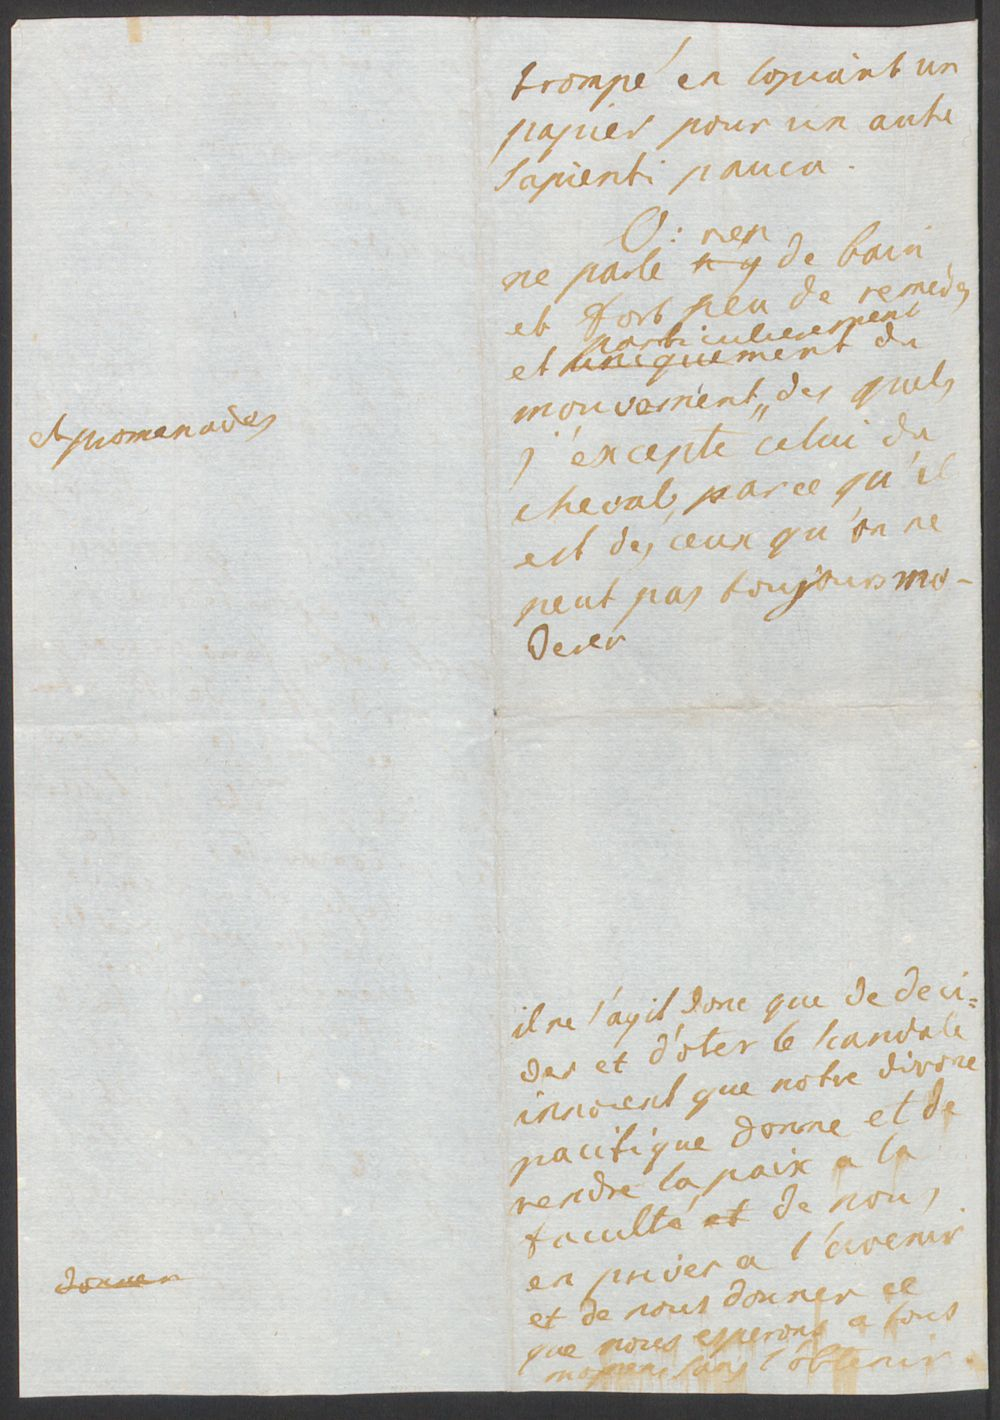 trompé en copiant un
papier pour un autre
Sapienti pauca.
O: n'en
ne parle n'y de bain
et fort peu de remedes
particulierement
et uniquement du
mouvement „ des quels
j'excepte celui du
cheval, parce qu'il
est des ceux qu'on ne
peut pas toujours mo-
derer
et promenades
il ne s'agit donc que de deci=
der et d'oter le scandale
innocent que notre divorce
pacifique donne et de
rendre la paix a la
faculté et de nous
en priver a l'avenir
et de nous donner ce
que nous esperons a tous
momens sans l'obtenir.
donner